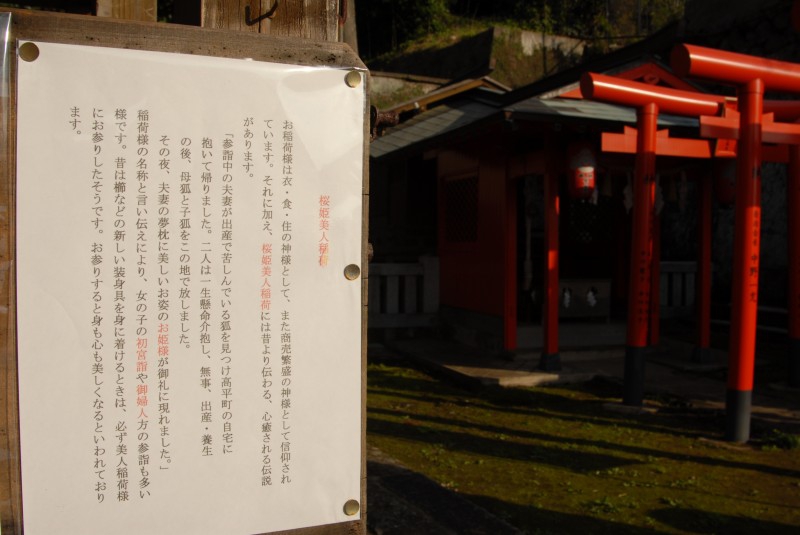 桜姫美人稲荷
お稲荷様は衣・食・住の神様として、また商売繁盛の神様として信仰され
ています。それに加え、桜姫美人稲荷には昔より伝わる、心癒される伝説
があります。
「参詣中の夫妻が出産で苦しんでいる狐を見つけ高平町の自宅に
抱いて帰りました。二人は一生懸命介抱し、無事、出産・養生
の後、母狐と子狐をこの地で放しました。
その夜、夫妻の夢枕に美しいお姿のお姫様が御礼に現れました。」
稲荷様の名称と言い伝えにより、女の子の初宮詣や御婦人方の参詣も多い
様です。昔は櫛などの新しい装身具を身に着けるときは、必ず美人稲荷様
にお参りしたそうです。お参りすると身も心も美しくなるといわれており
ます。